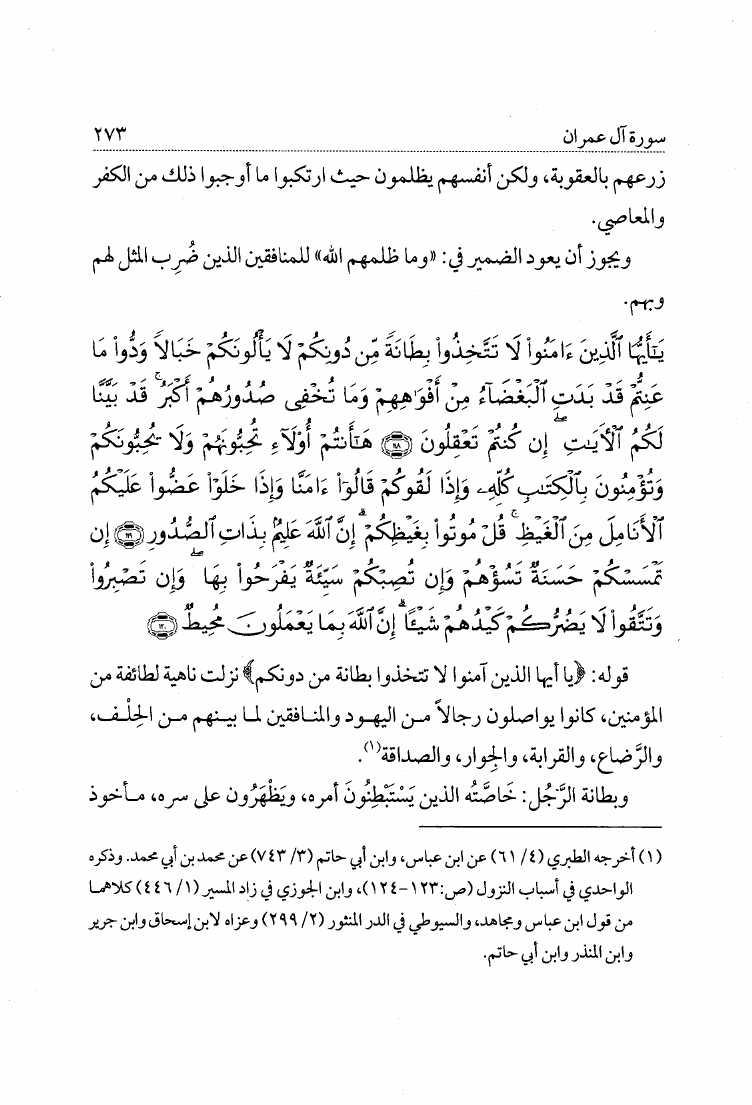 سورة آل عمران ٢٧٣
زرعهم بالعقوبة، ولكن أنفسهم يظلمون حيث ارتكبوا ما أوجبوا ذلك من الكفر
والمعاصي.
ويجوز أن يعود الضمير في: «وما ظلمهم الله» للمنافقين الذين ضُرِب المثل لهم
وبهم.
يَٰٓأَيُّهَا ٱلَّذِينَ ءَامَنُوا۟ لَا تَتَّخِذُوا۟ بِطَانَةً مِّن دُونِكُمْ لَا يَأْلُونَكُمْ خَبَالًا وَدُّوا۟ مَا
عَنِتُّمْ قَدْ بَدَتِ ٱلْبَغْضَآءُ مِنْ أَفْوَٰهِهِمْ وَمَا تُخْفِى صُدُورُهُمْ أَكْبَرُ ۚ قَدْ بَيَّنَّا
لَكُمُ ٱلْءَايَٰتِ ۖ إِن كُنتُمْ تَعْقِلُونَ ﴿١١٨﴾ هَٰٓأَنتُمْ أُو۟لَآءِ تُحِبُّونَهُمْ وَلَا يُحِبُّونَكُمْ
وَتُؤْمِنُونَ بِٱلْكِتَٰبِ كُلِّهِۦ وَإِذَا لَقُوكُمْ قَالُوٓا۟ ءَامَنَّا وَإِذَا خَلَوْا۟ عَضُّوا۟ عَلَيْكُمُ
ٱلْأَنَامِلَ مِنَ ٱلْغَيْظِ ۚ قُلْ مُوتُوا۟ بِغَيْظِكُمْ ۗ إِنَّ ٱللَّهَ عَلِيمٌۢ بِذَاتِ ٱلصُّدُورِ ﴿١١٩﴾ إِن
تَمْسَسْكُمْ حَسَنَةٌ تَسُؤْهُمْ وَإِن تُصِبْكُمْ سَيِّئَةٌ يَفْرَحُوا۟ بِهَا ۖ وَإِن تَصْبِرُوا۟
وَتَتَّقُوا۟ لَا يَضُرُّكُمْ كَيْدُهُمْ شَيْـًٔا ۗ إِنَّ ٱللَّهَ بِمَا يَعْمَلُونَ مُحِيطٌ ﴿١٢٠﴾
قوله: ﴿يا أيها الذين آمنوا لا تتخذوا بطانة من دونكم﴾ نزلت ناهية لطائفة من
المؤمنين، كانوا يواصلون رجالاً من اليهود والمنافقين لما بينهم من الحِلْف،
والرَّضاع، والقرابة، والجوار، والصداقة(١).
وبطانة الرَّجُل: خَاصَّتُه الذين يَسْتَبْطِنُونَ أمره، ويَظْهَرُون على سره، مأخوذ
(١) أخرجه الطبري (٤/ ٦١) عن ابن عباس، وابن أبي حاتم (٣/ ٧٤٣) عن محمد بن أبي محمد. وذكره
الواحدي في أسباب النزول (ص:١٢٣-١٢٤)، وابن الجوزي في زاد المسير (١/ ٤٤٦) كلاهما
من قول ابن عباس ومجاهد، والسيوطي في الدر المنثور (٢/ ٢٩٩) وعزاه لابن إسحاق وابن جرير
وابن المنذر وابن أبي حاتم.